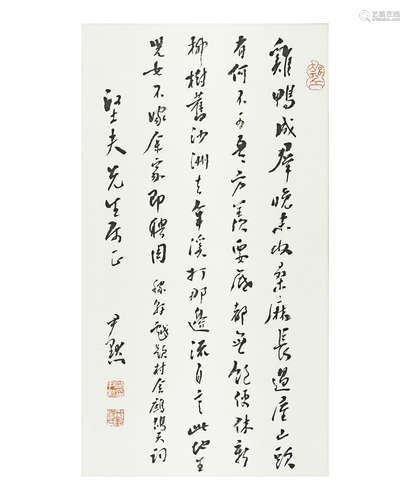 雞鴨成羣晚未收桑麻長過屋山頭
有何不可吾方羨要底都無飽便休新
柳樹舊沙洲去年溪打那邊流自言此地生
兒女不嫁余家即聘周 稼軒戲題村舍鷓鴣天詞
堅夫先生屬正
尹默